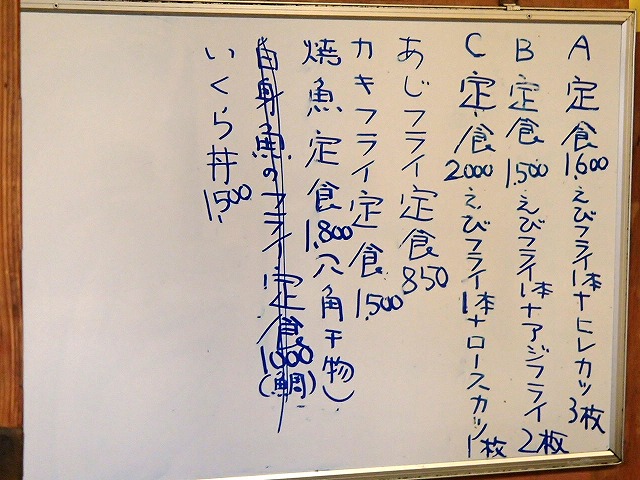 A定食1,600えびフライ1本+ヒレカツ3枚
B定食1,500えびフライ1本+アジフライ2枚
C定食2000えびフライ1本+ロースカツ1枚
あじフライ定食850
カキフライ定食1,500
焼魚定食1,800(角干物)
白身魚のフライ定食1000(鯛)
いくら丼1,500